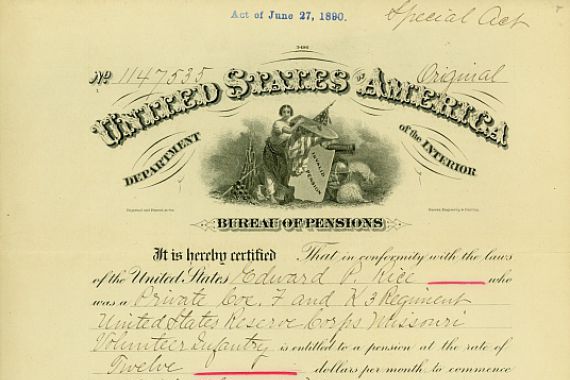 Act of June 27, 1890.
Special Act
No. 1147535
Original
UNITED STATES OF AMERICA
DEPARTMENT of the INTERIOR
INVALID PENSION
BUREAU OF PENSIONS
It is hereby certified That in conformity with the laws
of the United States Edward P. Rice who
was a Private Cos. F and K 3 Regiment
United States Reserve Corps Missouri
Volunteer Infantry is entitled to a pension at the rate of
Twelve dollars per month to commence